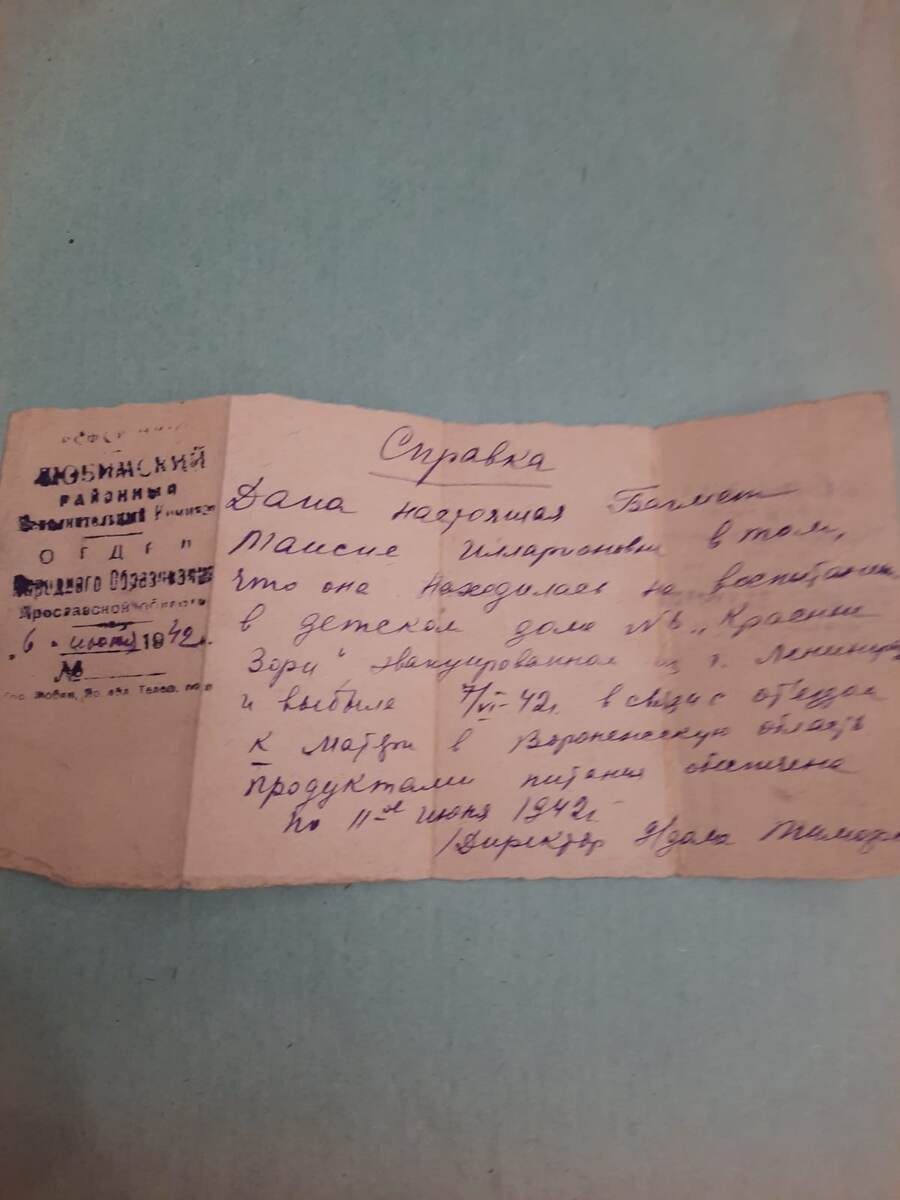 РСФСР
ЛЮБИМСКИЙ
РАЙОННЫЙ
Исполнительный Комитет
ОТДЕЛ
Народного Образования
Ярославской области
"6" июня 1942 г.
№
Справка
Дана настоящая Багмет
Таисие Илларионовне в том,
что она находилась на воспитании
в детском доме №6 „Красные
Зори" эвакуированном из г. Ленинград
и выбыла 7/VI-42г. в связи с от'ездом
к матери в Воронежскую область
продуктами питания обеспечена
по 11-ое июня 1942г.
/Директор д/дома